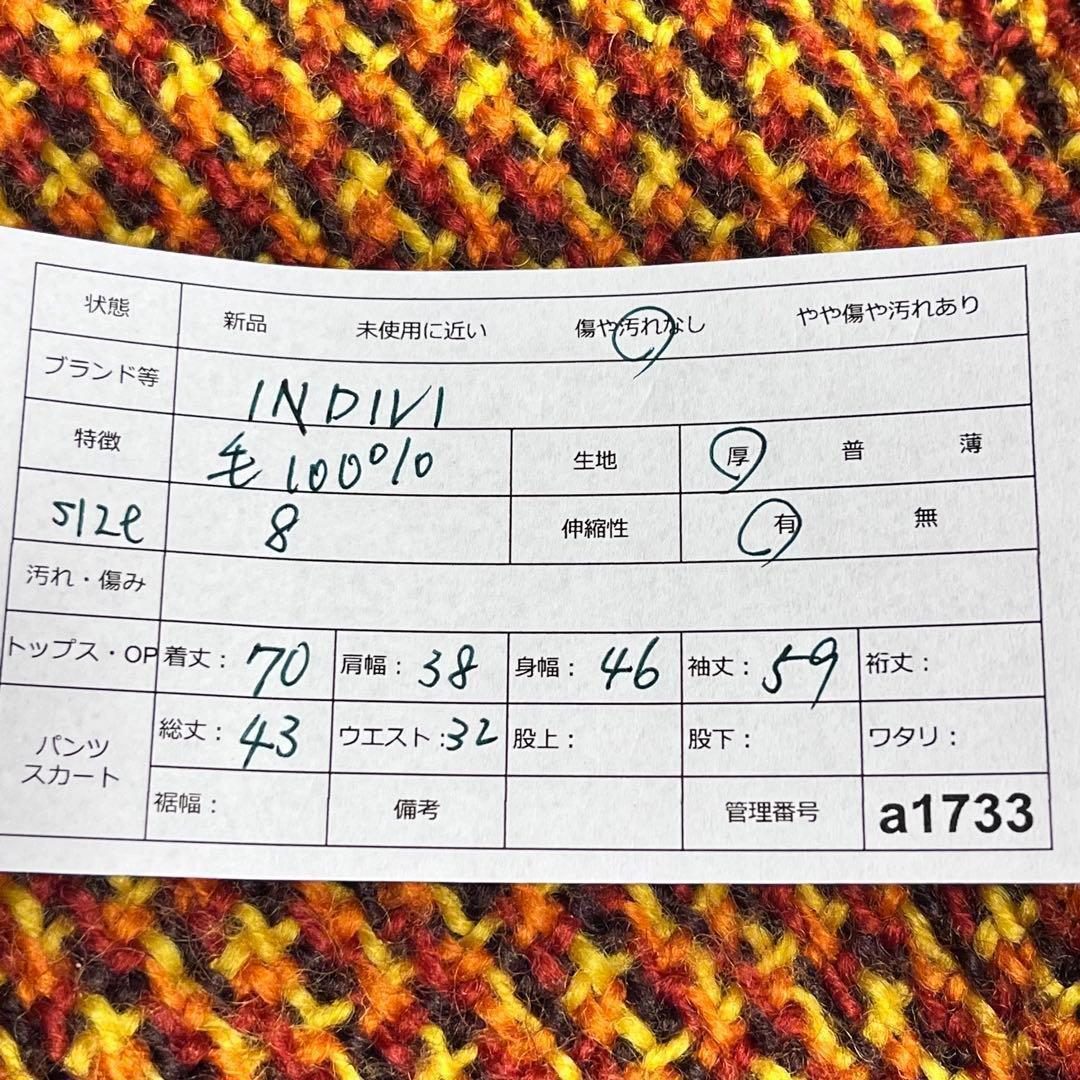 状態 新品 未使用に近い 傷や汚れなし やや傷や汚れあり
ブランド等 INDIVI
特徴 毛100% 生地 厚 普 薄
size 8 伸縮性 有 無
汚れ・傷み
トップス・OP 着丈: 70 肩幅: 38 身幅: 46 袖丈: 59 裄丈:
パンツ スカート 総丈: 43 ウエスト:32 股上: 股下: ワタリ:
裾幅: 備考 管理番号 a1733